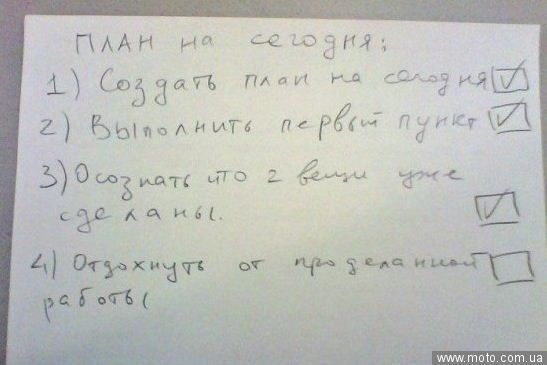 ПЛАН на сегодня:
1) Создать план на сегодня
2) Выполнить первый пункт
3) Осознать что 2 вещи уже
сделаны.
4) Отдохнуть от проделанной
работы
www.moto.com.ua